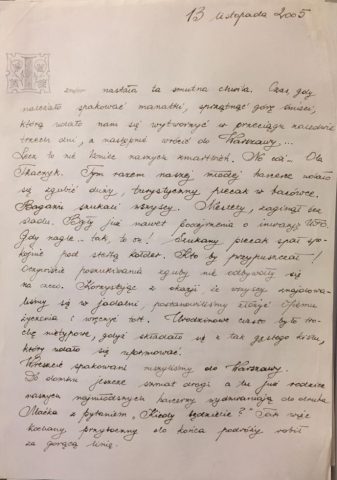 13 listopada 2005
I znów nastała ta smutna chwila. Czas, gdy
należało spakować manatki, sprzątnąć górę śmieci,
którą udało nam się wytworzyć w przeciągu niecałych
trzech dni, a następnie wrócić do Warszawy...
Lecz to nie koniec naszych zmartwień. No cóż... Ola
Tkaczyk. Tym razem naszej młodej harcerce udało
się zgubić duży, turystyczny plecak w harcówce.
Bagażu szukali wszyscy. Niestety, zaginął bez
śladu. Były już nawet podejrzenia o inwazję UFO.
Gdy nagle... tak, to on! Szukany plecak spał spo-
kojnie pod stertą kołder. Kto by przypuszczał!
Oczywiście poszukiwania zguby nie odbywały się
na czczo. Korzystając z okazji że wszyscy znajdowa-
liśmy się w jadalni postanowiliśmy złożyć
życzenia i wręczyć tort. Urodzinowe ciasto było tro-
chę nietypowe, gdyż składało się z tak gęstego kisielu,
który udało się uformować.
Wreszcie spakowani ruszyliśmy do Warszawy.
Do domów jeszcze szmat drogi a tu już rodzice
naszych najmłodszych harcerzy wydzwaniają do druha
Maćka z pytaniem "Kiedy będziecie?" Tak więc
kochany, przyboczny do końca podróży robił
za gorącą linię.